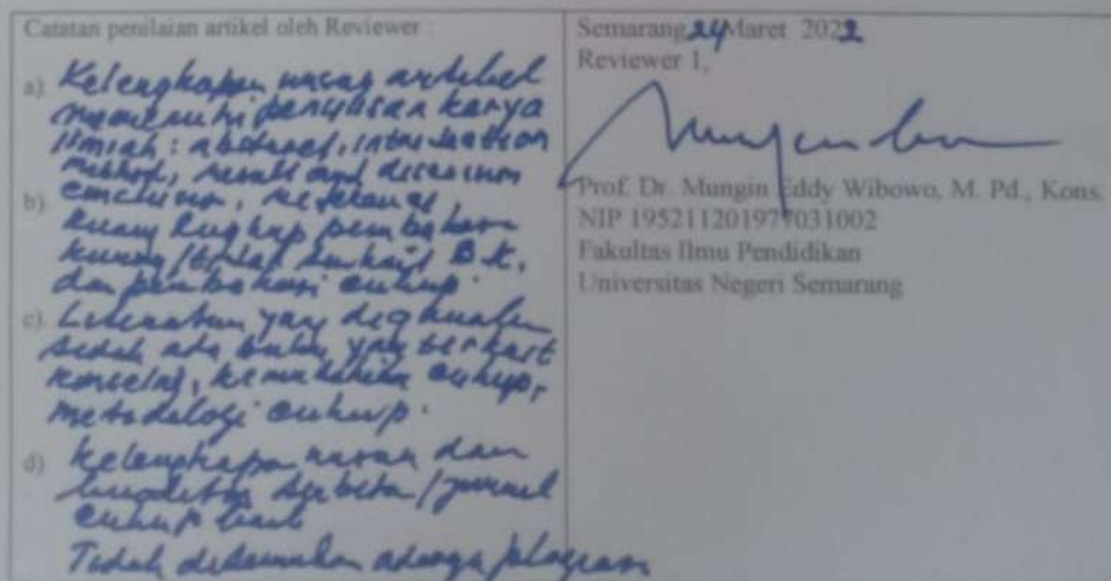 Catatan penilaian artikel oleh Reviewer :
a). Kelengkapan unsur artikel
memenuhi penulisan karya
ilmiah : abstract, introduction
method, result and discussion
conclusion, referensi
b). Ruang lingkup pembahasan
B.K,
dan pembahasan cukup.
c). Literatur yang digunakan
sudah ada buku yang terkait
konseling, cukup,
metodologi cukup.
d) Kelengkapan unsur dan
kualitas / jurnal
cukup baik
Tidak ditemukan adanya plagiasi
Semarang, 24 Maret 2022
Reviewer 1,
Prof. Dr. Mungin Eddy Wibowo, M. Pd., Kons.
NIP 195211201977031002
Fakultas Ilmu Pendidikan
Universitas Negeri Semarang